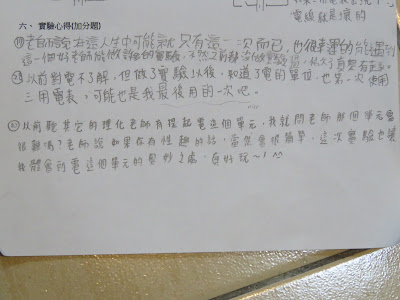 電線就是壞的
六、實驗心得(加分題)
老師說在這人生中可能就只有這一次而已,也很幸運的能遇到
這一個好老師能做
以前對電不了解,但做了實驗以後,知道了電的單位,也第一次使用
三用電表,可能也是我最後用的一次吧。
以前聽其它的理化老師有提起電這個單元,我就問老師那個單元會
很難嗎?老師說如果你有性趣的話,當然會很簡單,這次實驗也讓
我體會到電這個單元的奧妙之處,真好玩~!^^